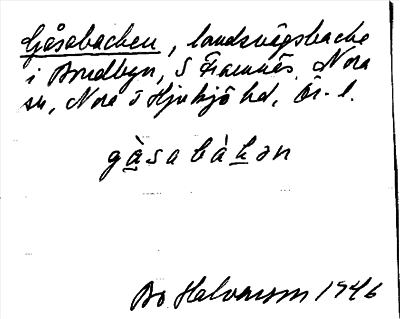 Gåsabacken, landsvägsbacke
i Bredbyn, S Framnäs, Nora
sn, Nora o Hjulsjö hd, Ör. l.
gåsabàkən
Bo Halvarson 1946